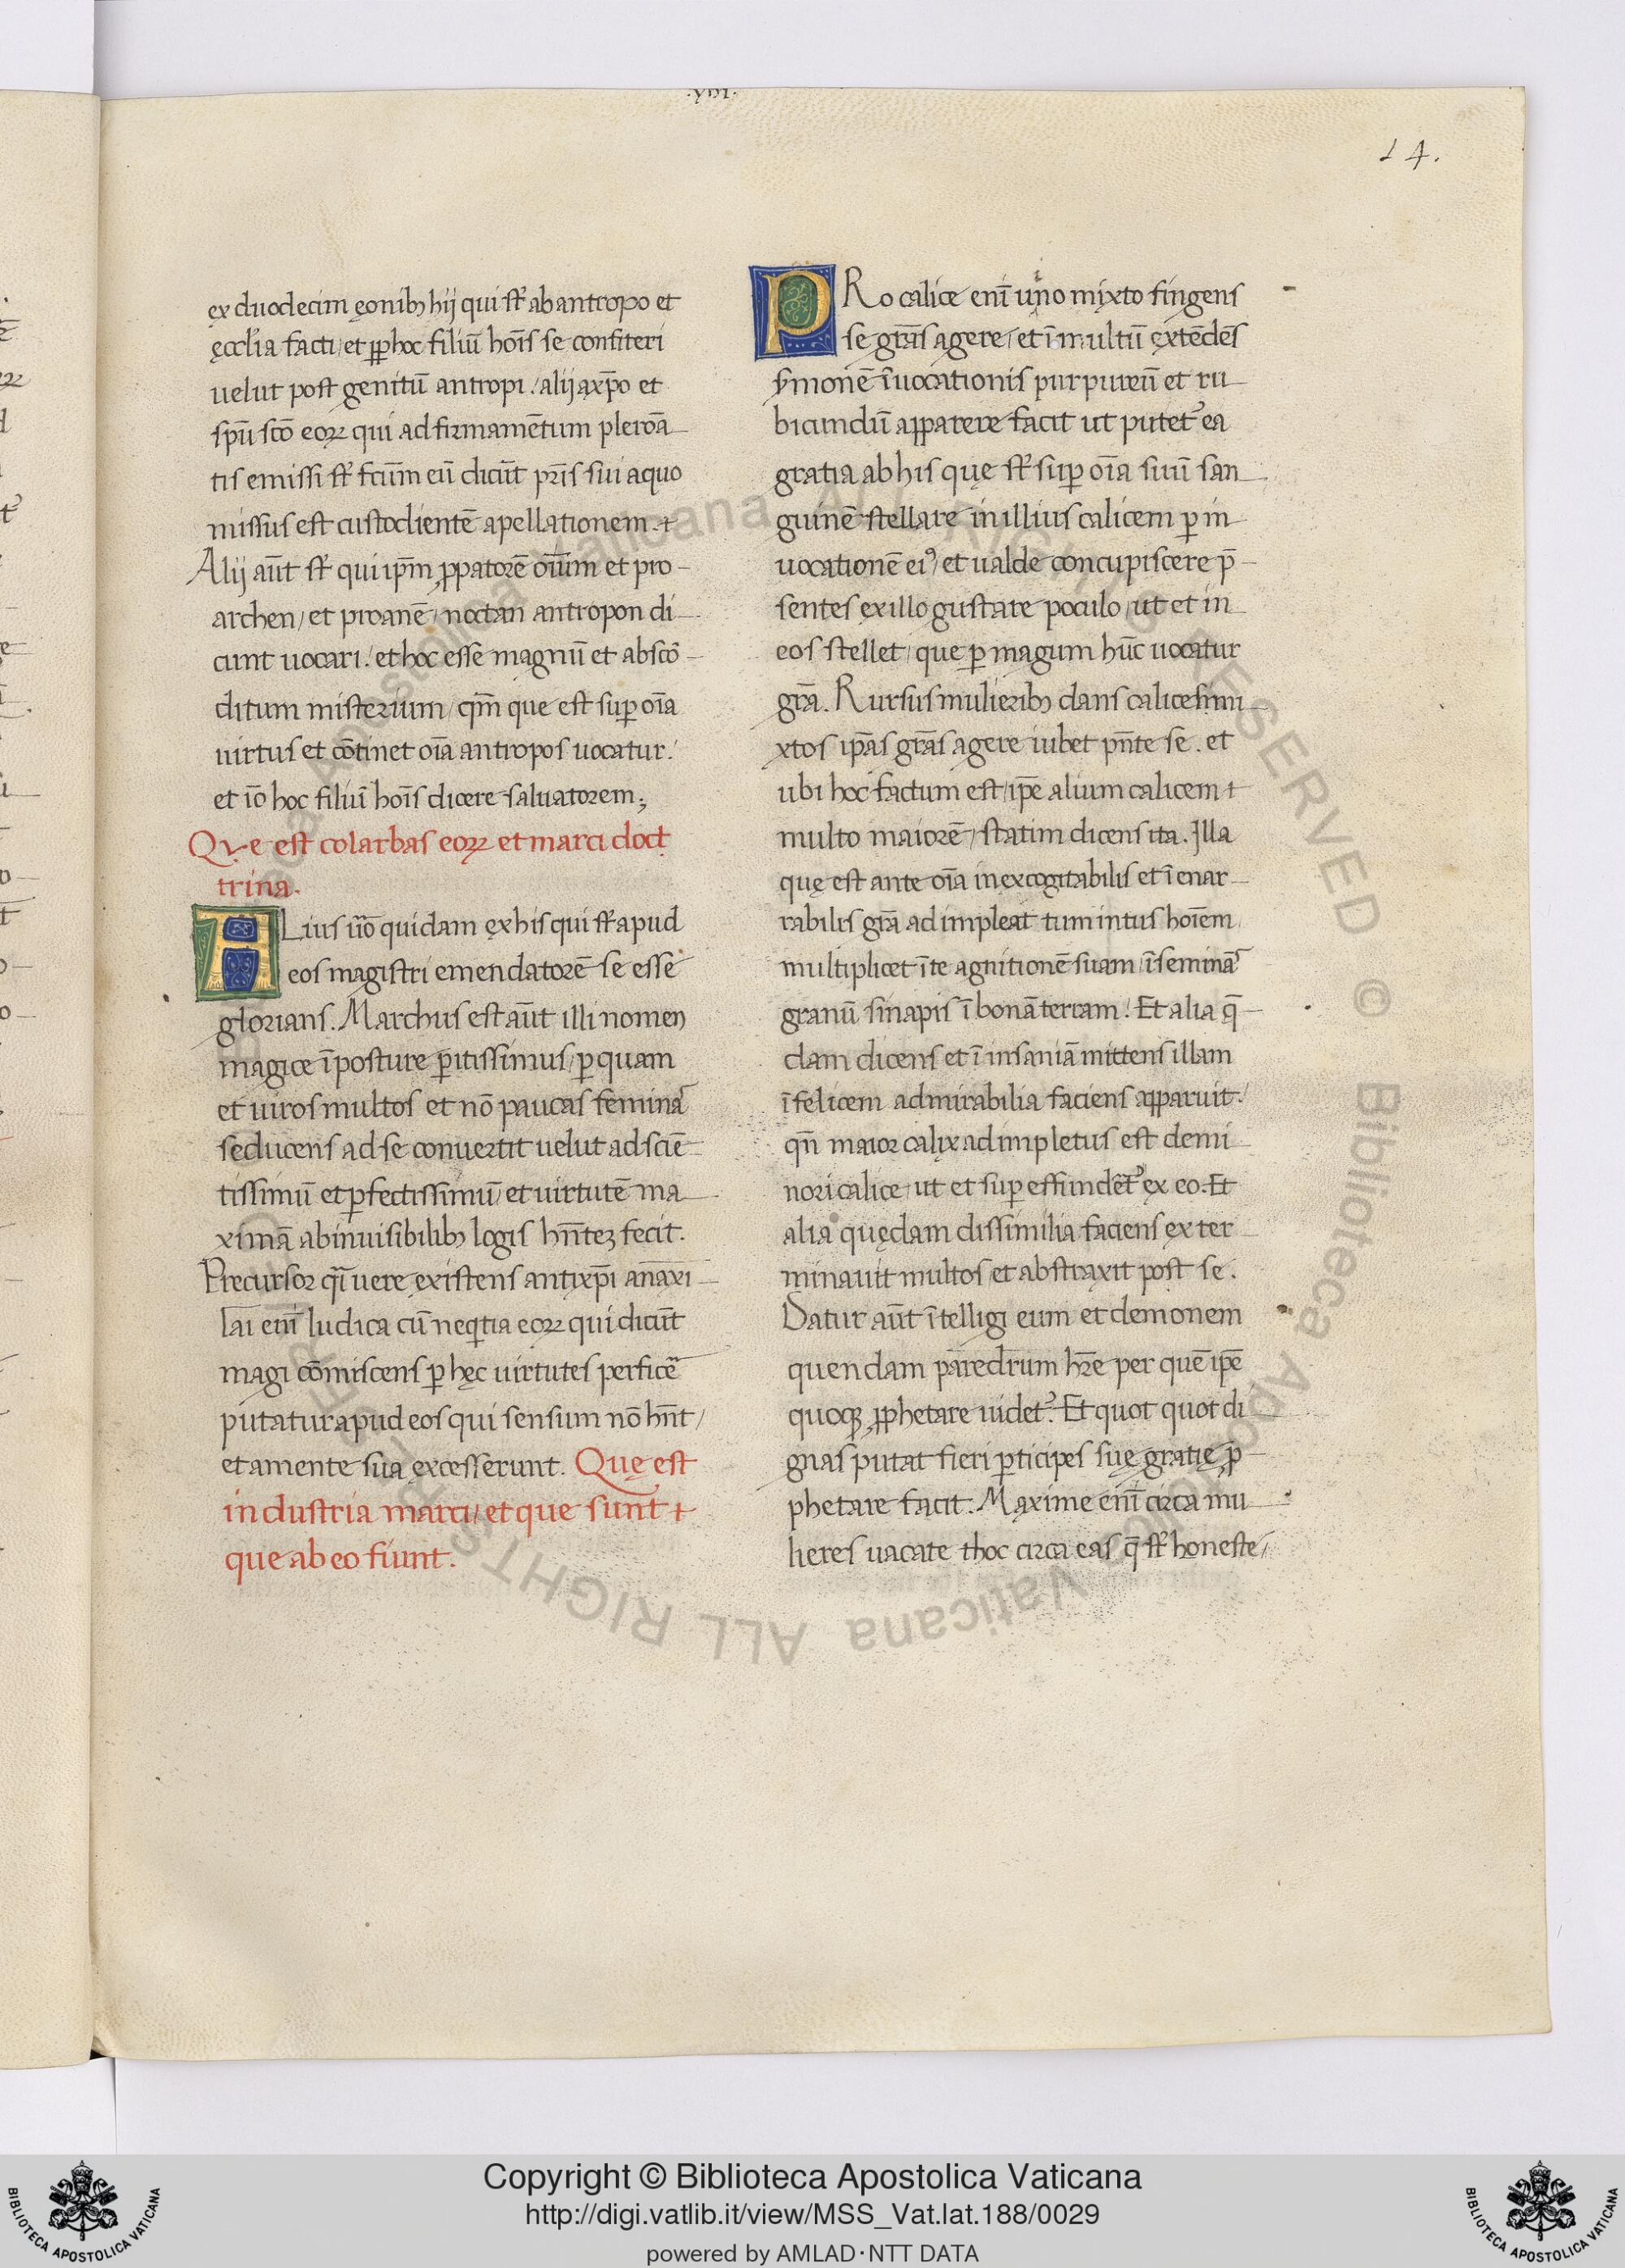 .xiiii.
14.
ex duodecim ęonibꝫ hij qui st̄ ab antropo et
ęccl̄ia facti / et ꝓp hoc filiū hoīs se confiteri
uelut post genitū antropi / alij a xp̄o et
sp̄u scō eoꝝ qui ad firmamētum pleroā
tis emissi st̄ fcūm eū dicūt pr̄is sui a quo
missus est custodientē apellationem.
Alij aūt st̄ qui ip̄m ꝓpatorē oīum et pro
archen / et proanē / noctan antropon di
cunt uocari / et hoc esse magnū et abscō
ditum misterium / qm̄ que est suꝑ oīa
uirtus et cōtinet oīa antropos uocatur /
et iō hoc filiū hoīs dicere saluatorem;
Que est colarbas eoꝝ et marci doct
trina.
ALius u͞o quidam ex his qui st̄ apud
eos magistri emendatorē se esse
glorians. Marchus est aūt illi nomen
magice īposture ꝑitissimus / ꝑ quam
et uiros multos et nō paucas femina͛s
seducens ad se conuertit uelut ad sciē
tissimū et ꝑfectissimū / et uirtutē ma
ximā ab inuisibilibꝫ logis hn̄teꝫ fecit.
Precursor qͣi uere existens antixp̄i anaxi
lai eni̅ ludica cū neqͥtia eoꝝ qui dicūt
magi cōmiscens ꝑ hęc uirtutes perficē
putatur apud eos qui sensum nō hn̄t /
et a mente sua excesserunt. Quę est
industria marci / et que sunt
que ab eo fiunt.
PRo calice enī uino mixto fingens
se grās agere / et ī multū extēdēs
s̄monē īuocationis purpureū et ru
bicundū apparere facit ut putet᷑ ea
gratia ab his quę st̄ suꝑ oīa suū san
guinē stellare in illius calicem ꝑ in
uocationē eiꝰ / et ualde concupiscere p̄
sentes ex illo gustare poculo / ut et in
eos stellet / que ꝑ magum hūc uocatur
grā. Rursus mulieribꝫ dans calices mi
xtos ip̄as grās agere iubet pn̄te se. et
ubi hoc factum est / ip̄e alium calicem
multo maiorē / statim dicens ita. Illa
quę est ante oīa inexcogitabilis et īenar
rabilis grā adimpleat tum intus hoīem
multiplicet īte agnitionē suam / īseminās
granū sinapis ī bonā terram / Et alia q̄
dam dicens et ī insaniā mittens illam
īfelicem admirabilia faciens apparuit /
qn̄ maior calix adimpletus est de mi
nori calice / ut et suꝑ effundēt᷑ ex eo. Et
alia quędam dissimilia faciens exter
minauit multos / et abstraxit post se.
Datur aūt ītelligi eum et demonem
quendam paredrum hr̄e per quē ip̄e
quoqꝫ ꝓphetare uidet᷑. Et quot quot di
gnas putat fieri ꝑticipes suę gratię ꝓ
phetare facit. Maxime enī circa mu
lieres uacate thoc circa eas q̄ st̄ honeste /
Copyright © Biblioteca Apostolica Vaticana
http://digi.vatlib.it/view/MSS_Vat.lat.188/0029
powered by AMLAD·NTT DATA
BIBLIOTECA APOSTOLICA VATICANA
BIBLIOTECA APOSTOLICA VATICANA